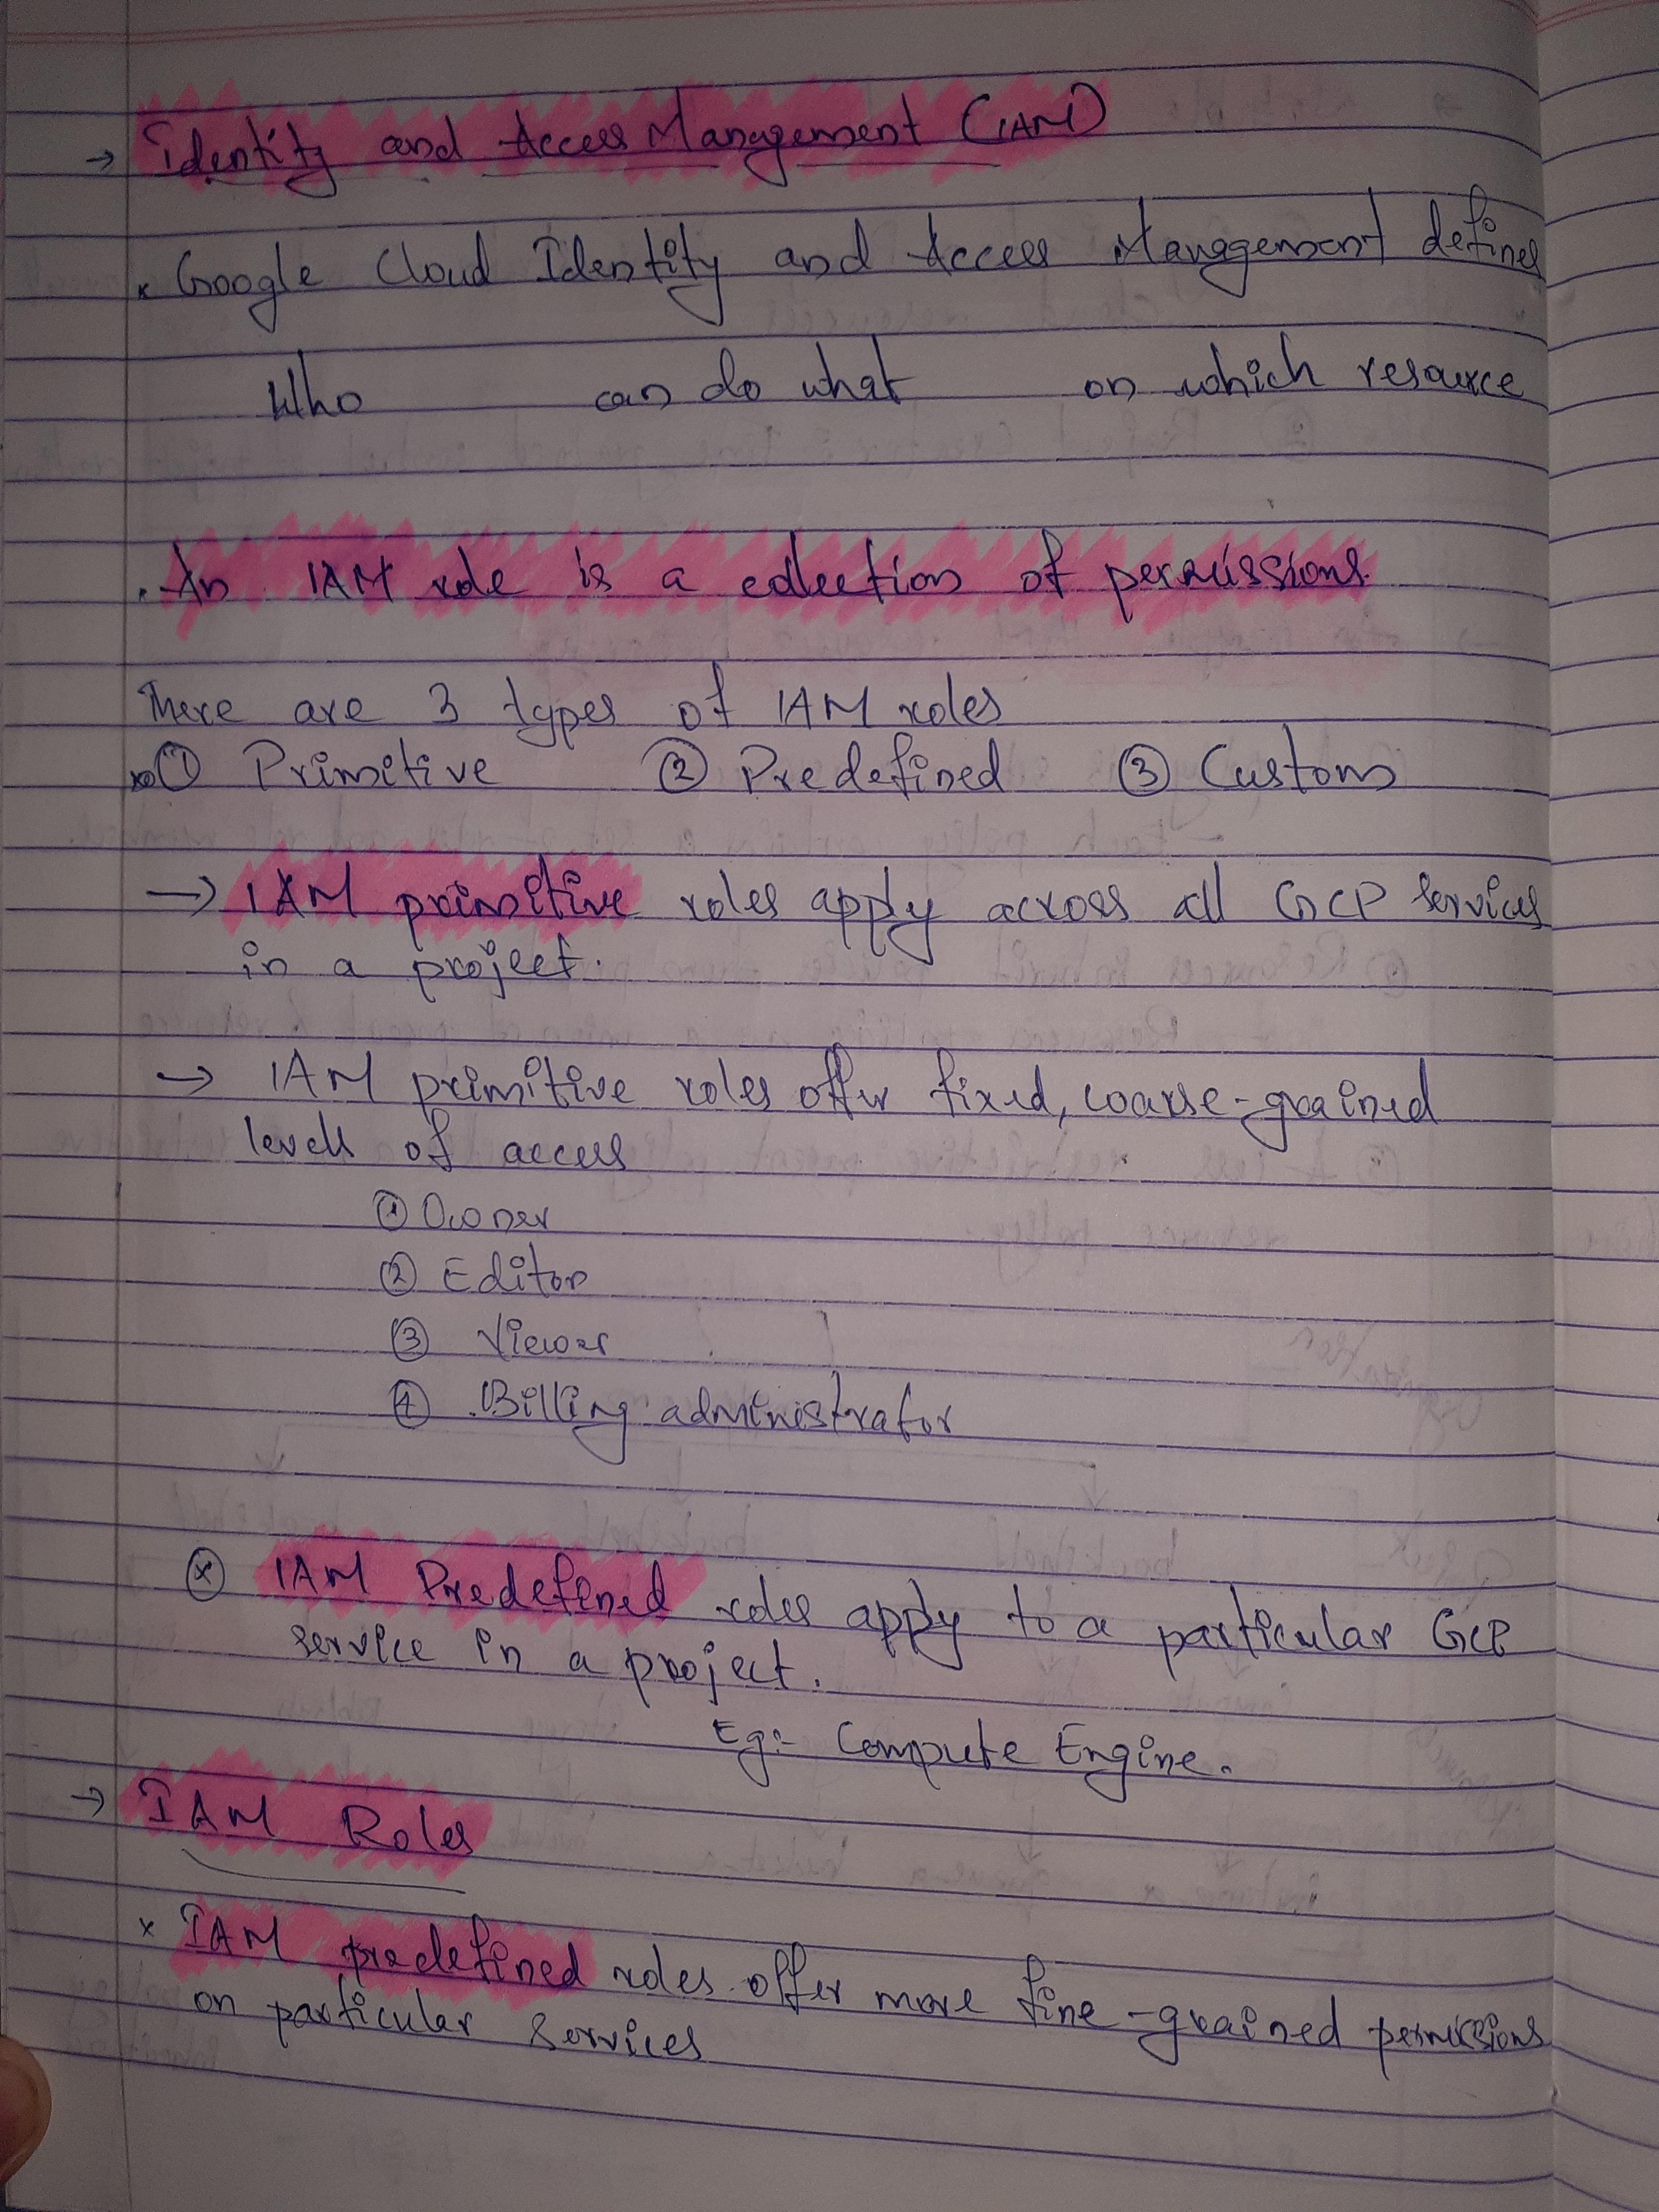 → Identity and Access Management (IAM)
x Google Cloud Identity and Access Management defines
Who can do what on which resource
. An IAM role is a collection of permissions.
There are 3 types of IAM roles
① Primitive ② Predefined ③ Custom
→ IAM primitive roles apply across all GCP services
in a project.
→ IAM primitive roles offer fixed, coarse-grained
levels of access
① Owner
② Editor
③ Viewer
④ Billing administrator
ⓧ IAM Predefined roles apply to a particular GCP
service in a project.
Eg:- Compute Engine.
→ IAM Roles
x IAM predefined roles offer more fine-grained permissions
on particular services